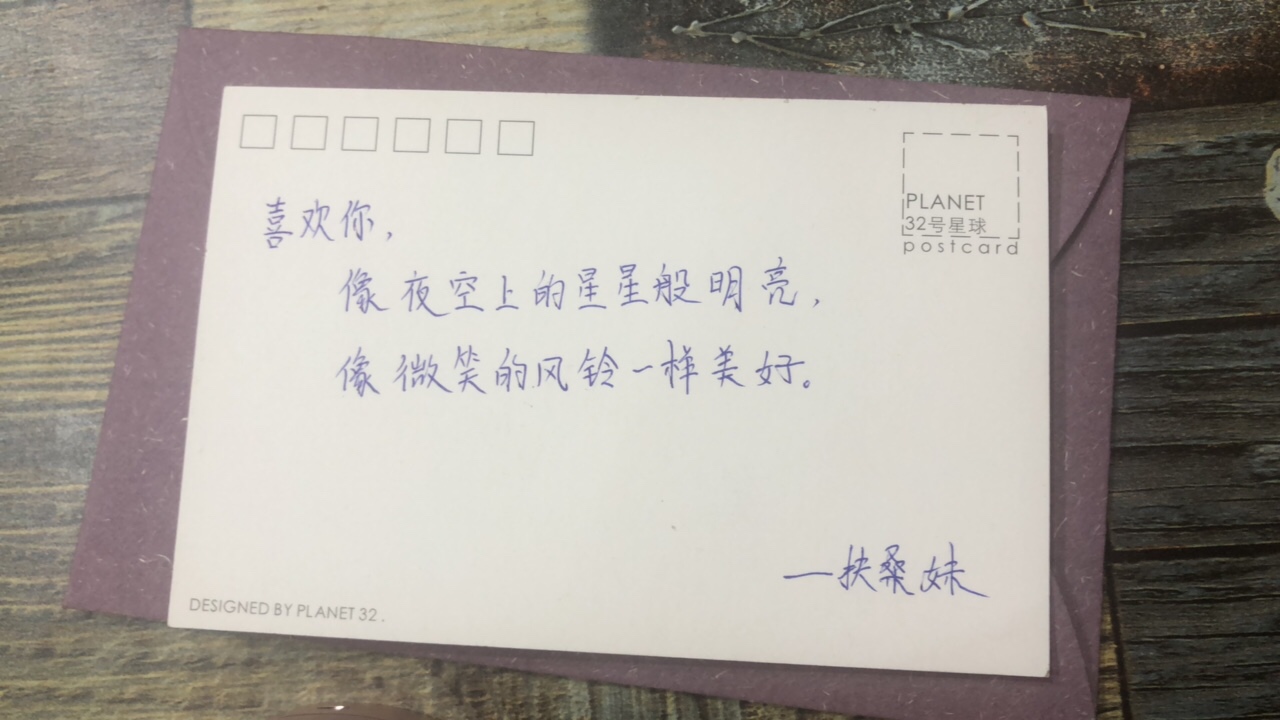 PLANET
32号星球
postcard
喜欢你,
像夜空上的星星般明亮,
像微笑的风铃一样美好。
—扶桑妹
DESIGNED BY PLANET 32.